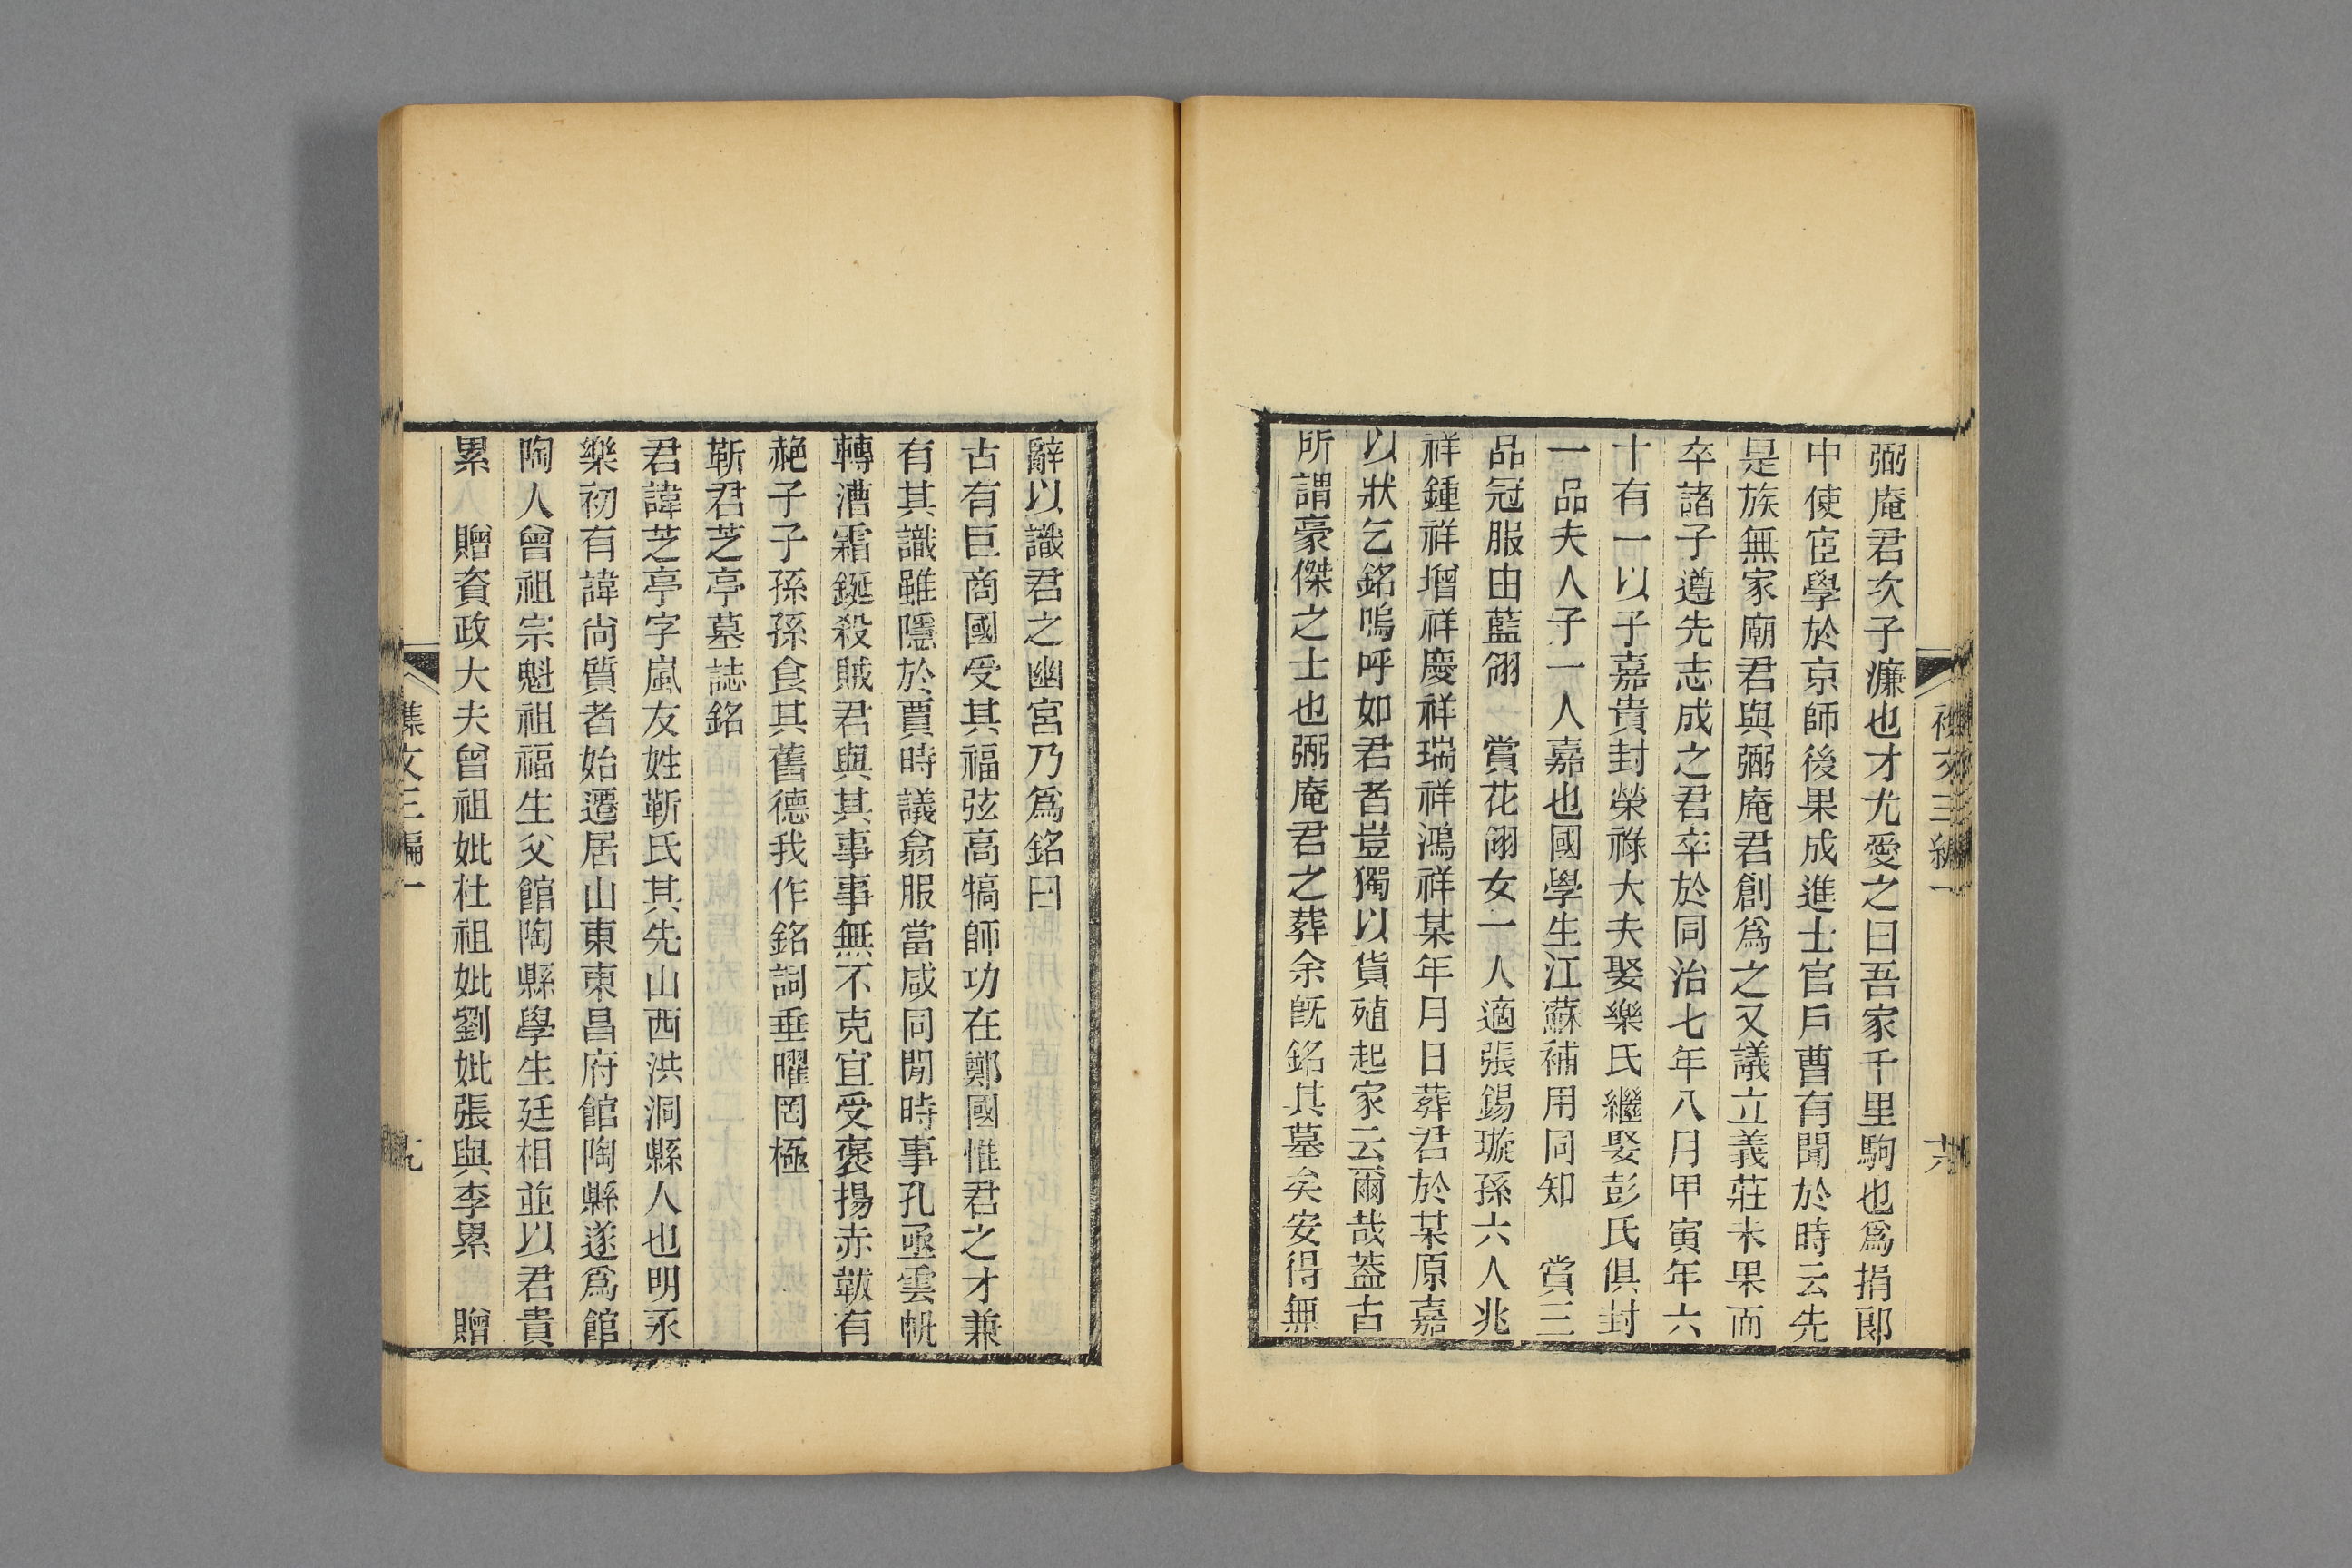 弼庵君次子濂也才尤愛之曰吾家千里駒也爲捐郎
中使宦學於京師後果成進士官戶曹有聞於時云先
是族無家廟君與弼庵君創爲之又議立義莊未果而
卒諸子遵先志成之君卒於同治七年八月甲寅年六
十有一以子嘉貴封榮祿大夫娶樂氏繼娶彭氏俱封
一品夫人子一人嘉也國學生江蘇補用同知 賞三
品冠服由藍翎 賞花翎女一人適張錫璇孫六人兆
祥鍾祥增祥慶祥瑞祥鴻祥某年月日葬君於某原嘉
以狀乞銘嗚呼如君者豈獨以貨殖起家云爾哉蓋古
所謂豪傑之士也弼庵君之葬余旣銘其墓矣安得無
辭以識君之幽宮乃爲銘曰
古有巨商國受其福弦高犒師功在鄭國惟君之才兼
有其識雖隱於賈時議翕服當咸同閒時事孔亟雲帆
轉漕霜鋋殺賊君與其事事無不克宜受褒揚赤韍有
赩子子孫孫食其舊德我作銘詞垂曜罔極
靳君芝亭墓誌銘
君諱芝亭字嵐友姓靳氏其先山西洪洞縣人也明永
樂初有諱尚質者始遷居山東東昌府館陶縣遂爲館
陶人曾祖宗魁祖福生父館陶縣學生廷相並以君貴
累 贈資政大夫曾祖妣杜祖妣劉妣張與李累 贈
文三編一